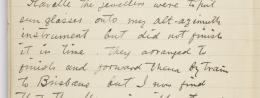 Flavelle the jewellers were to put
sun glasses onto my alt-azimuth
instrument but did not finish
it in time. They arranged to
finish and forward them by train
to Brisbane but I now find